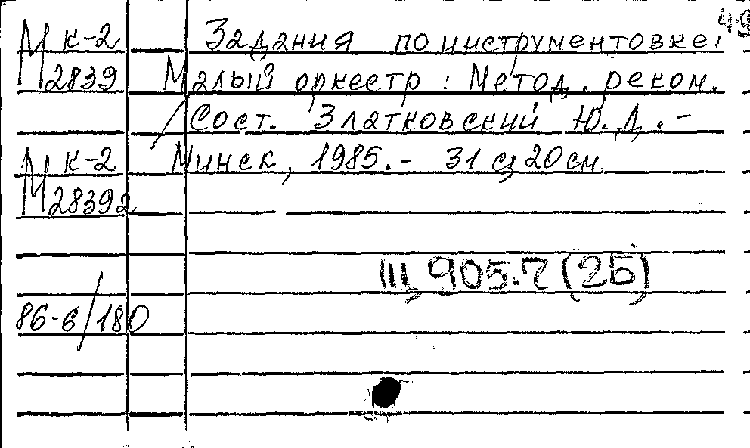 49
М к-2 Задания по инструментовке:
М 2839 Малый оркестр : Метод. реком.
/Сост. Златковский Ю.Д. -
М к-2 Минск, 1985. - 31 с; 20 см
М 2839а
Щ 905.7 (2Б)
86-6/180